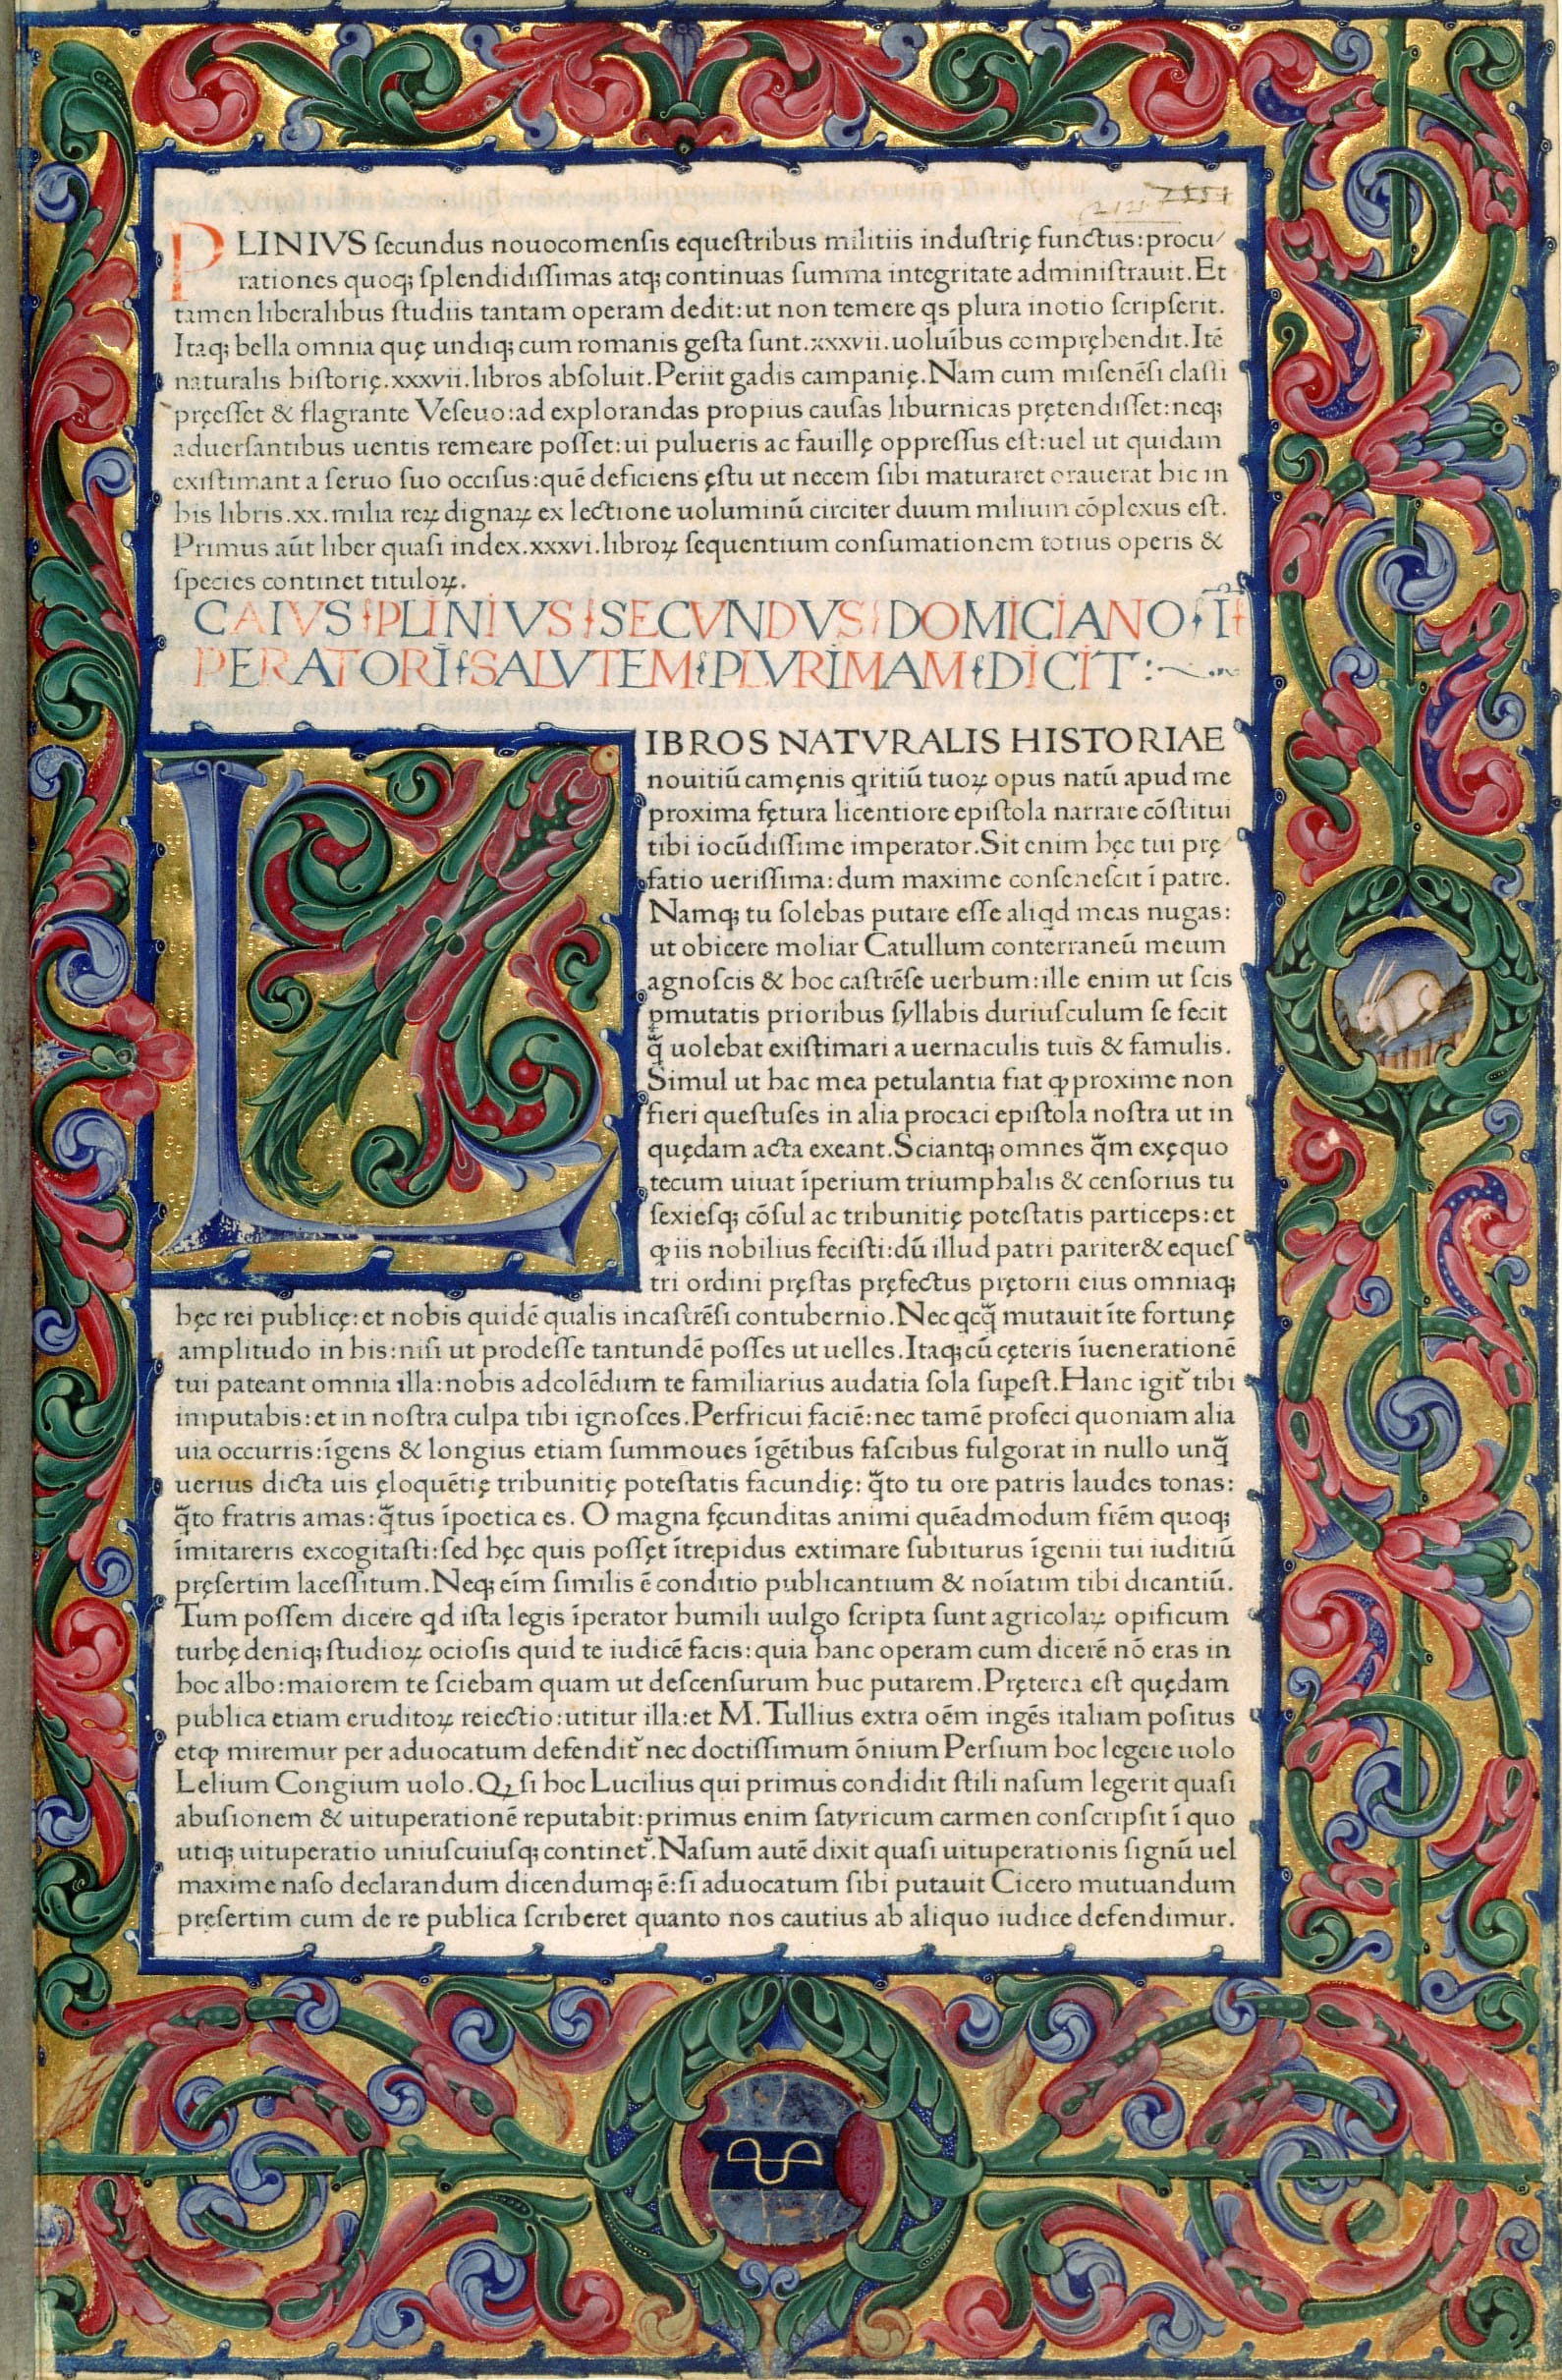 PLINIVS ſecundus nouocomenſis equeſtribus militiis induſtrię functus:procu/
rationes quoq; ſplendidiſſimas atq; continuas ſumma integritate adminiſtrauit.Et
tamen liberalibus ſtudiis tantam operam dedit:ut non temere qs plura inotio ſcripſerit.
Itaq; bella omnia quę undiq; cum romanis geſta ſunt.xxxvii.uoluībus compręhendit.Itē
naturalis hiſtorię.xxxvii.libros abſoluit.Periit gadis campanię.Nam cum miſenēſi claſſi
pręeſſet & flagrante Veſeuo:ad explorandas propius cauſas liburnicas prętendiſſet:neq;
aduerſantibus uentis remeare poſſet:ui pulueris ac fauillę oppreſſus eſt:uel ut quidam
exiſtimant a ſeruo ſuo occiſus:quē deficiens ęſtu ut necem ſibi maturaret orauerat hic in
his libris.xx.milia reꝝ dignaꝝ ex lectione uoluminū circiter duum milium cōplexus eſt.
Primus aūt liber quaſi index.xxxvi.libroꝝ ſequentium conſumationem totius operis &
ſpecies continet tituloꝝ.
CAIVS PLINIVS SECVNDVS DOMICIANO I
PERATORI SALVTEM PLVRIMAM DICIT:
LIBROS NATVRALIS HISTORIAE
nouitiū camęnis qritiū tuoꝝ opus natū apud me
proxima fętura licentiore epiſtola narrare cōſtitui
tibi iocūdiſſime imperator.Sit enim hęc tui prę/
fatio ueriſſima:dum maxime conſeneſcit ī patre.
Namq; tu ſolebas putare eſſe aliqd meas nugas:
ut obicere moliar Catullum conterraneū meum
agnoſcis & hoc caſtrēſe uerbum:ille enim ut ſcis
ꝑmutatis prioribus ſyllabis duriuſculum ſe fecit
q̄ uolebat exiſtimari a uernaculis tuis & famulis.
Simul ut hac mea petulantia fiat ꝙ proxime non
fieri queſtuſes in alia procaci epiſtola noſtra ut in
quędam acta exeant.Sciantq; omnes q̄m exęquo
tecum uiuat īperium triumphalis & cenſorius tu
ſexieſq; cōſul ac tribunitię poteſtatis particeps:et
ꝙ iis nobilius feciſti:dū illud patri pariter& equeſ
tri ordini pręſtas pręfectus prętorii eius omniaq;
hęc rei publicę:et nobis quidē qualis incaſtrēſi contubernio.Nec qcq̄ mutauit īte fortunę
amplitudo in his:niſi ut prodeſſe tantundē poſſes ut uelles.Itaq; cū cęteris īuenerationē
tui pateant omnia illa:nobis adcolēdum te familiarius audatia ſola ſuꝑeſt.Hanc igit̄ tibi
imputabis:et in noſtra culpa tibi ignoſces.Perfricui faciē:nec tamē profeci quoniam alia
uia occurris:īgens & longius etiam ſummoues īgētibus faſcibus fulgorat in nullo unq̄
uerius dicta uis ęloquētię tribunitię poteſtatis facundię: q̄to tu ore patris laudes tonas:
q̄to fratris amas:q̄tus īpoetica es. O magna fęcunditas animi quēadmodum frēm quoq;
īmitareris excogitaſti:ſed hęc quis poſſęt ītrepidus extimare ſubiturus īgenii tui iuditiū
pręſertim laceſſitum.Neq; eīm ſimilis ē conditio publicantium & noīatim tibi dicantiū.
Tum poſſem dicere qd iſta legis īperator humili uulgo ſcripta ſunt agricolaꝝ opificum
turbę deniq; ſtudioꝝ ocioſis quid te iudicē facis:quia hanc operam cum dicerē nō eras in
hoc albo:maiorem te ſciebam quam ut deſcenſurum huc putarem.Pręterea eſt quędam
publica etiam eruditoꝝ reiectio:utitur illa:et M.Tullius extra oēm ingēs italiam poſitus
etꝙ miremur per aduocatum defendit̄ nec doctiſſimum ōnium Perſium hoc legere uolo
Lelium Congium uolo.Qꝫ ſi hoc Lucilius qui primus condidit ſtili naſum legerit quaſi
abuſionem & uituperationē reputabit:primus enim ſatyricum carmen conſcripſit ī quo
utiq; uituperatio uniuſcuiuſq; continet̄.Naſum autē dixit quaſi uituperationis ſignū uel
maxime naſo declarandum dicendumq; ē:ſi aduocatum ſibi putauit Cicero mutuandum
pręſertim cum de re publica ſcriberet quanto nos cautius ab aliquo iudice defendimur.